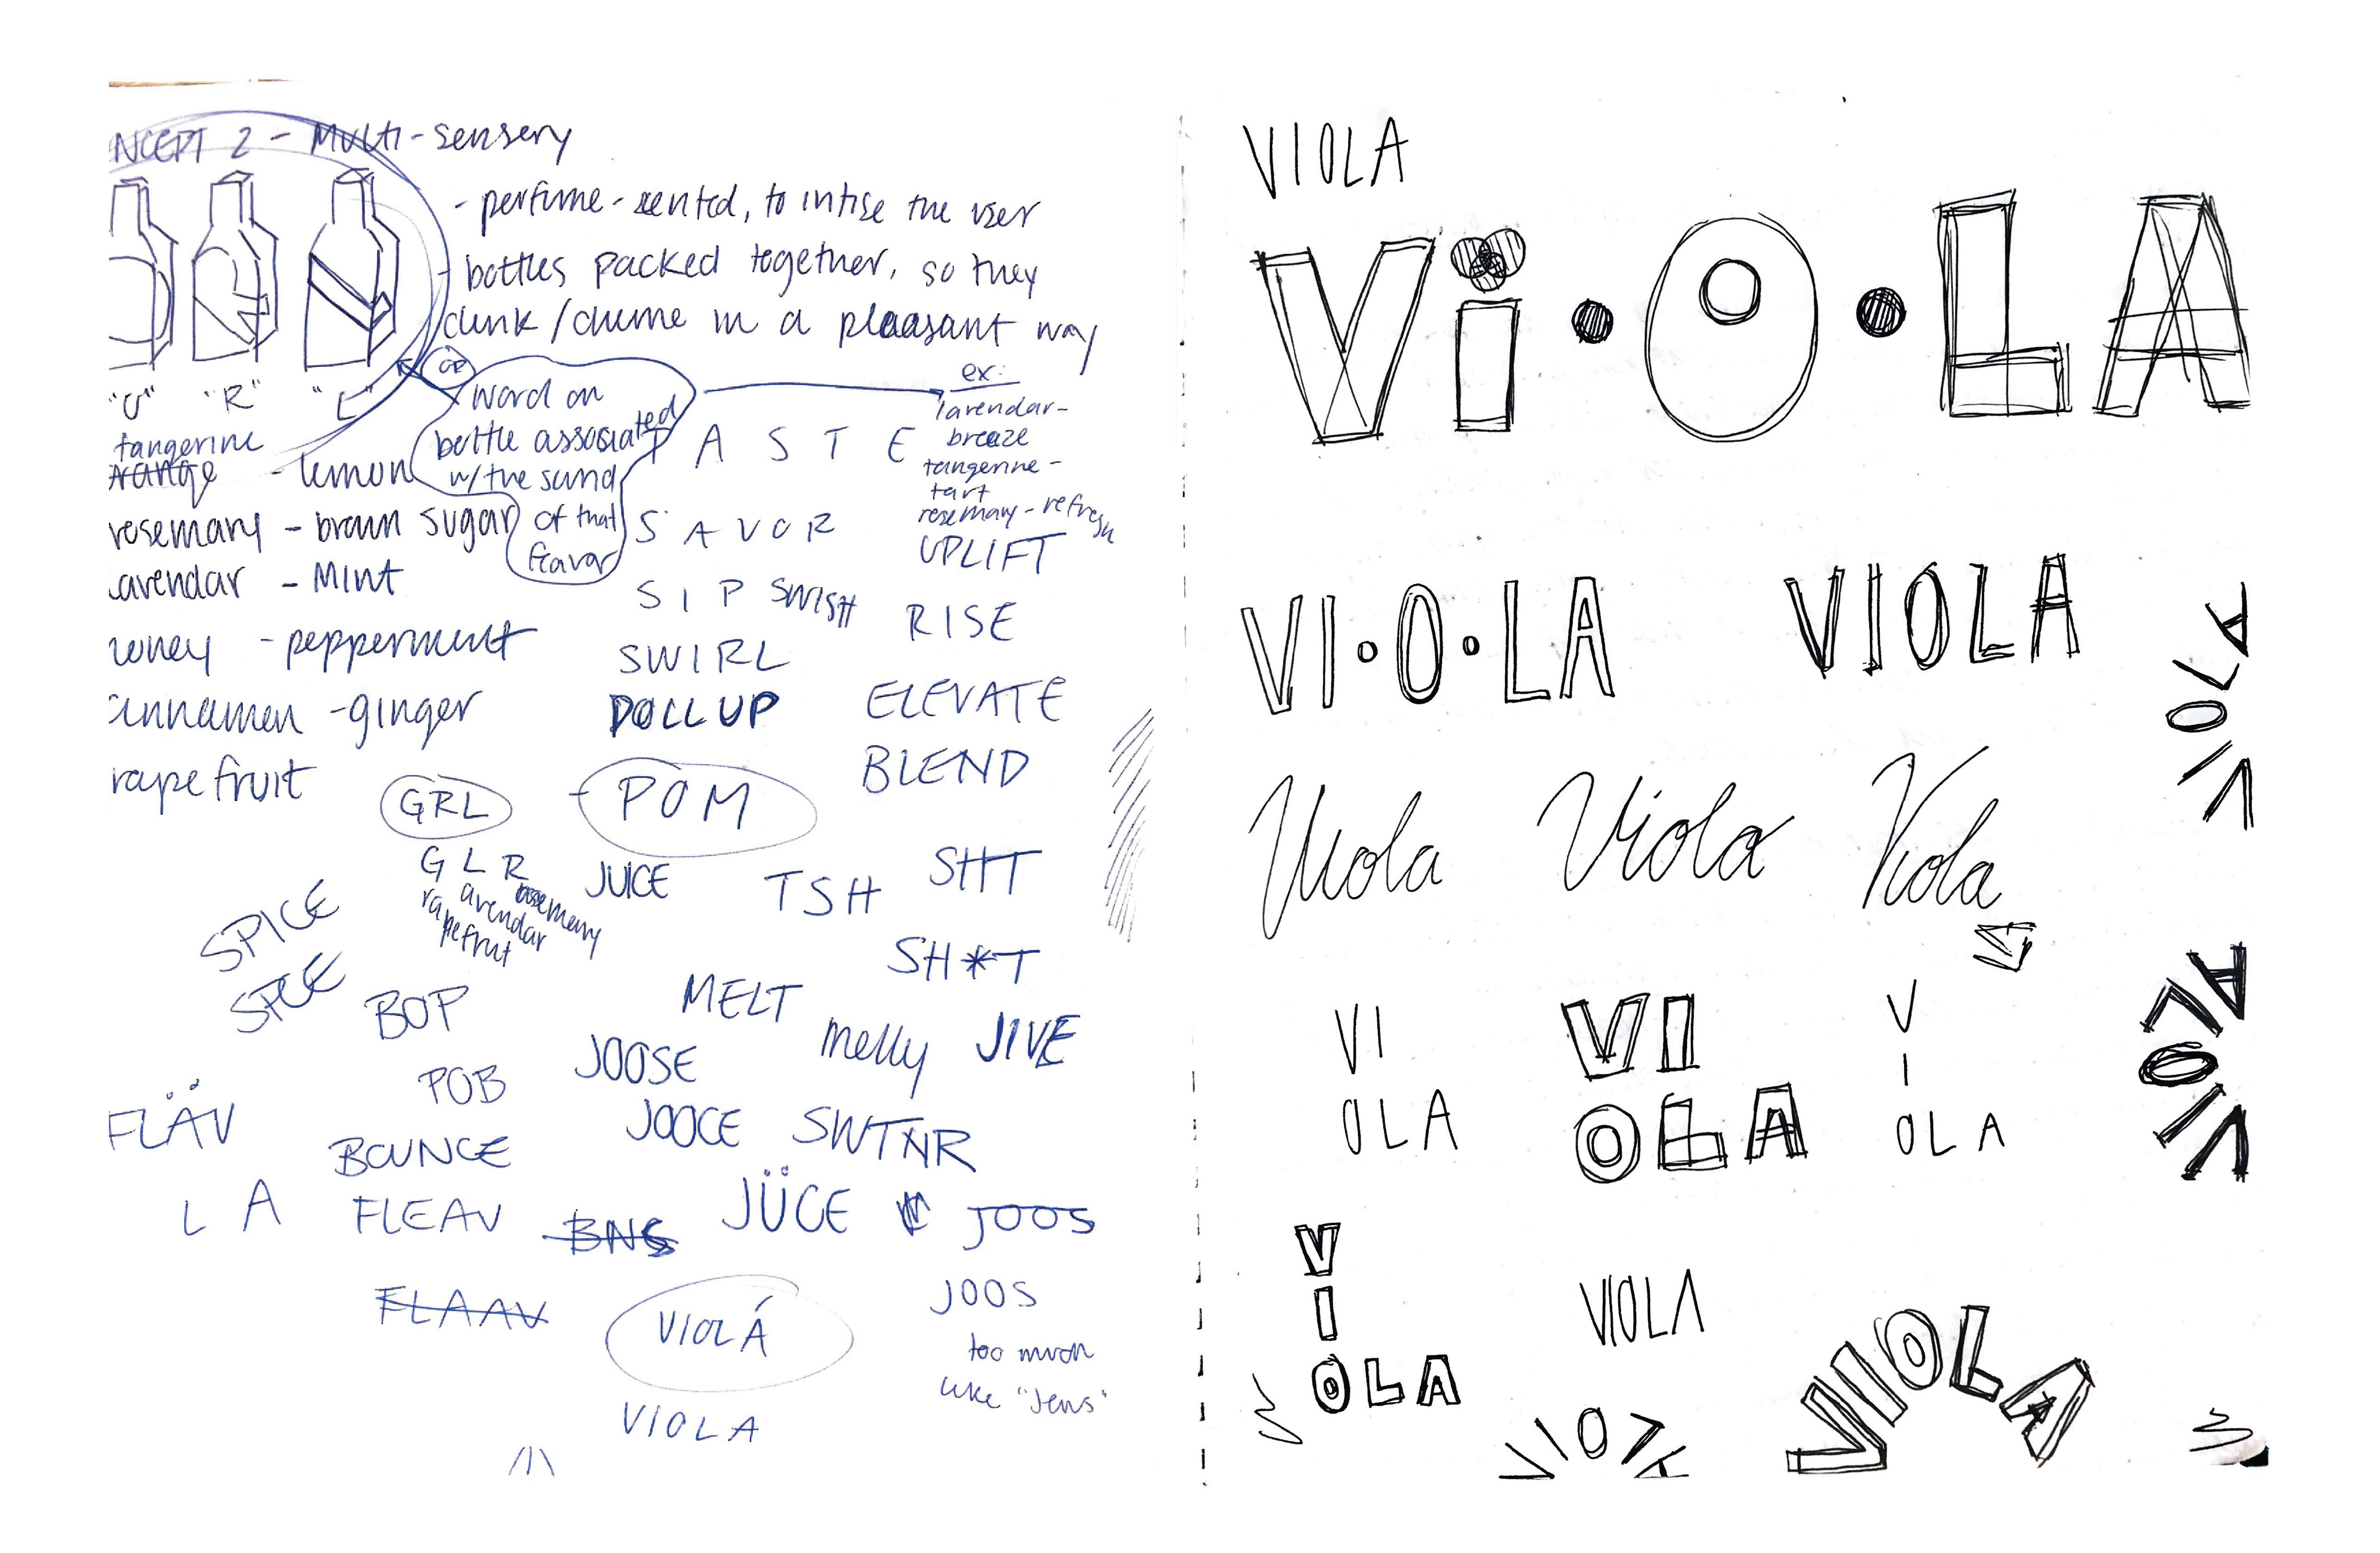 NCEPT 2 - Multi-sensery
- perfume-sented, to intise the user
- bottles packed together, so they
clink/chime in a pleasant way
"G" "R" "L"
OR
word on
bottle associated
w/the sound
of that
flavor
ex:
lavendar-
breeze
tangerine-
tart
rosemary-refresh
tangerine
orange - lemon
rosemary - brown sugar
avendar - Mint
honey - peppermint
cinnamen - ginger
rapefruit
TASTE
SAVOR
SIP SWISH
SWIRL
DOLLUP
UPLIFT
RISE
ELEVATE
BLEND
GRL
POM
G L R
rapefrut avendar osemary
JUICE
TSH
SHT
SPICE
SPCE
BOP
MELT
SH*T
melly
JIVE
JOOSE
POB
FLÄV
JOOCE
SWTNR
BOUNCE
LA
FLEAV
BNS
JÜCE
JOOS
FLAAV
VIOLÁ
JOOS
too much
like "Jews"
VIOLA
VIOLA
Vi•O•LA
VI•O•LA
VIOLA
VIOLA
Viola
Viola
Viola
VI
OLA
VI
OLA
V
I
OLA
VIOLA
V
I
OLA
VIOLA
VIOLA
VIOLA